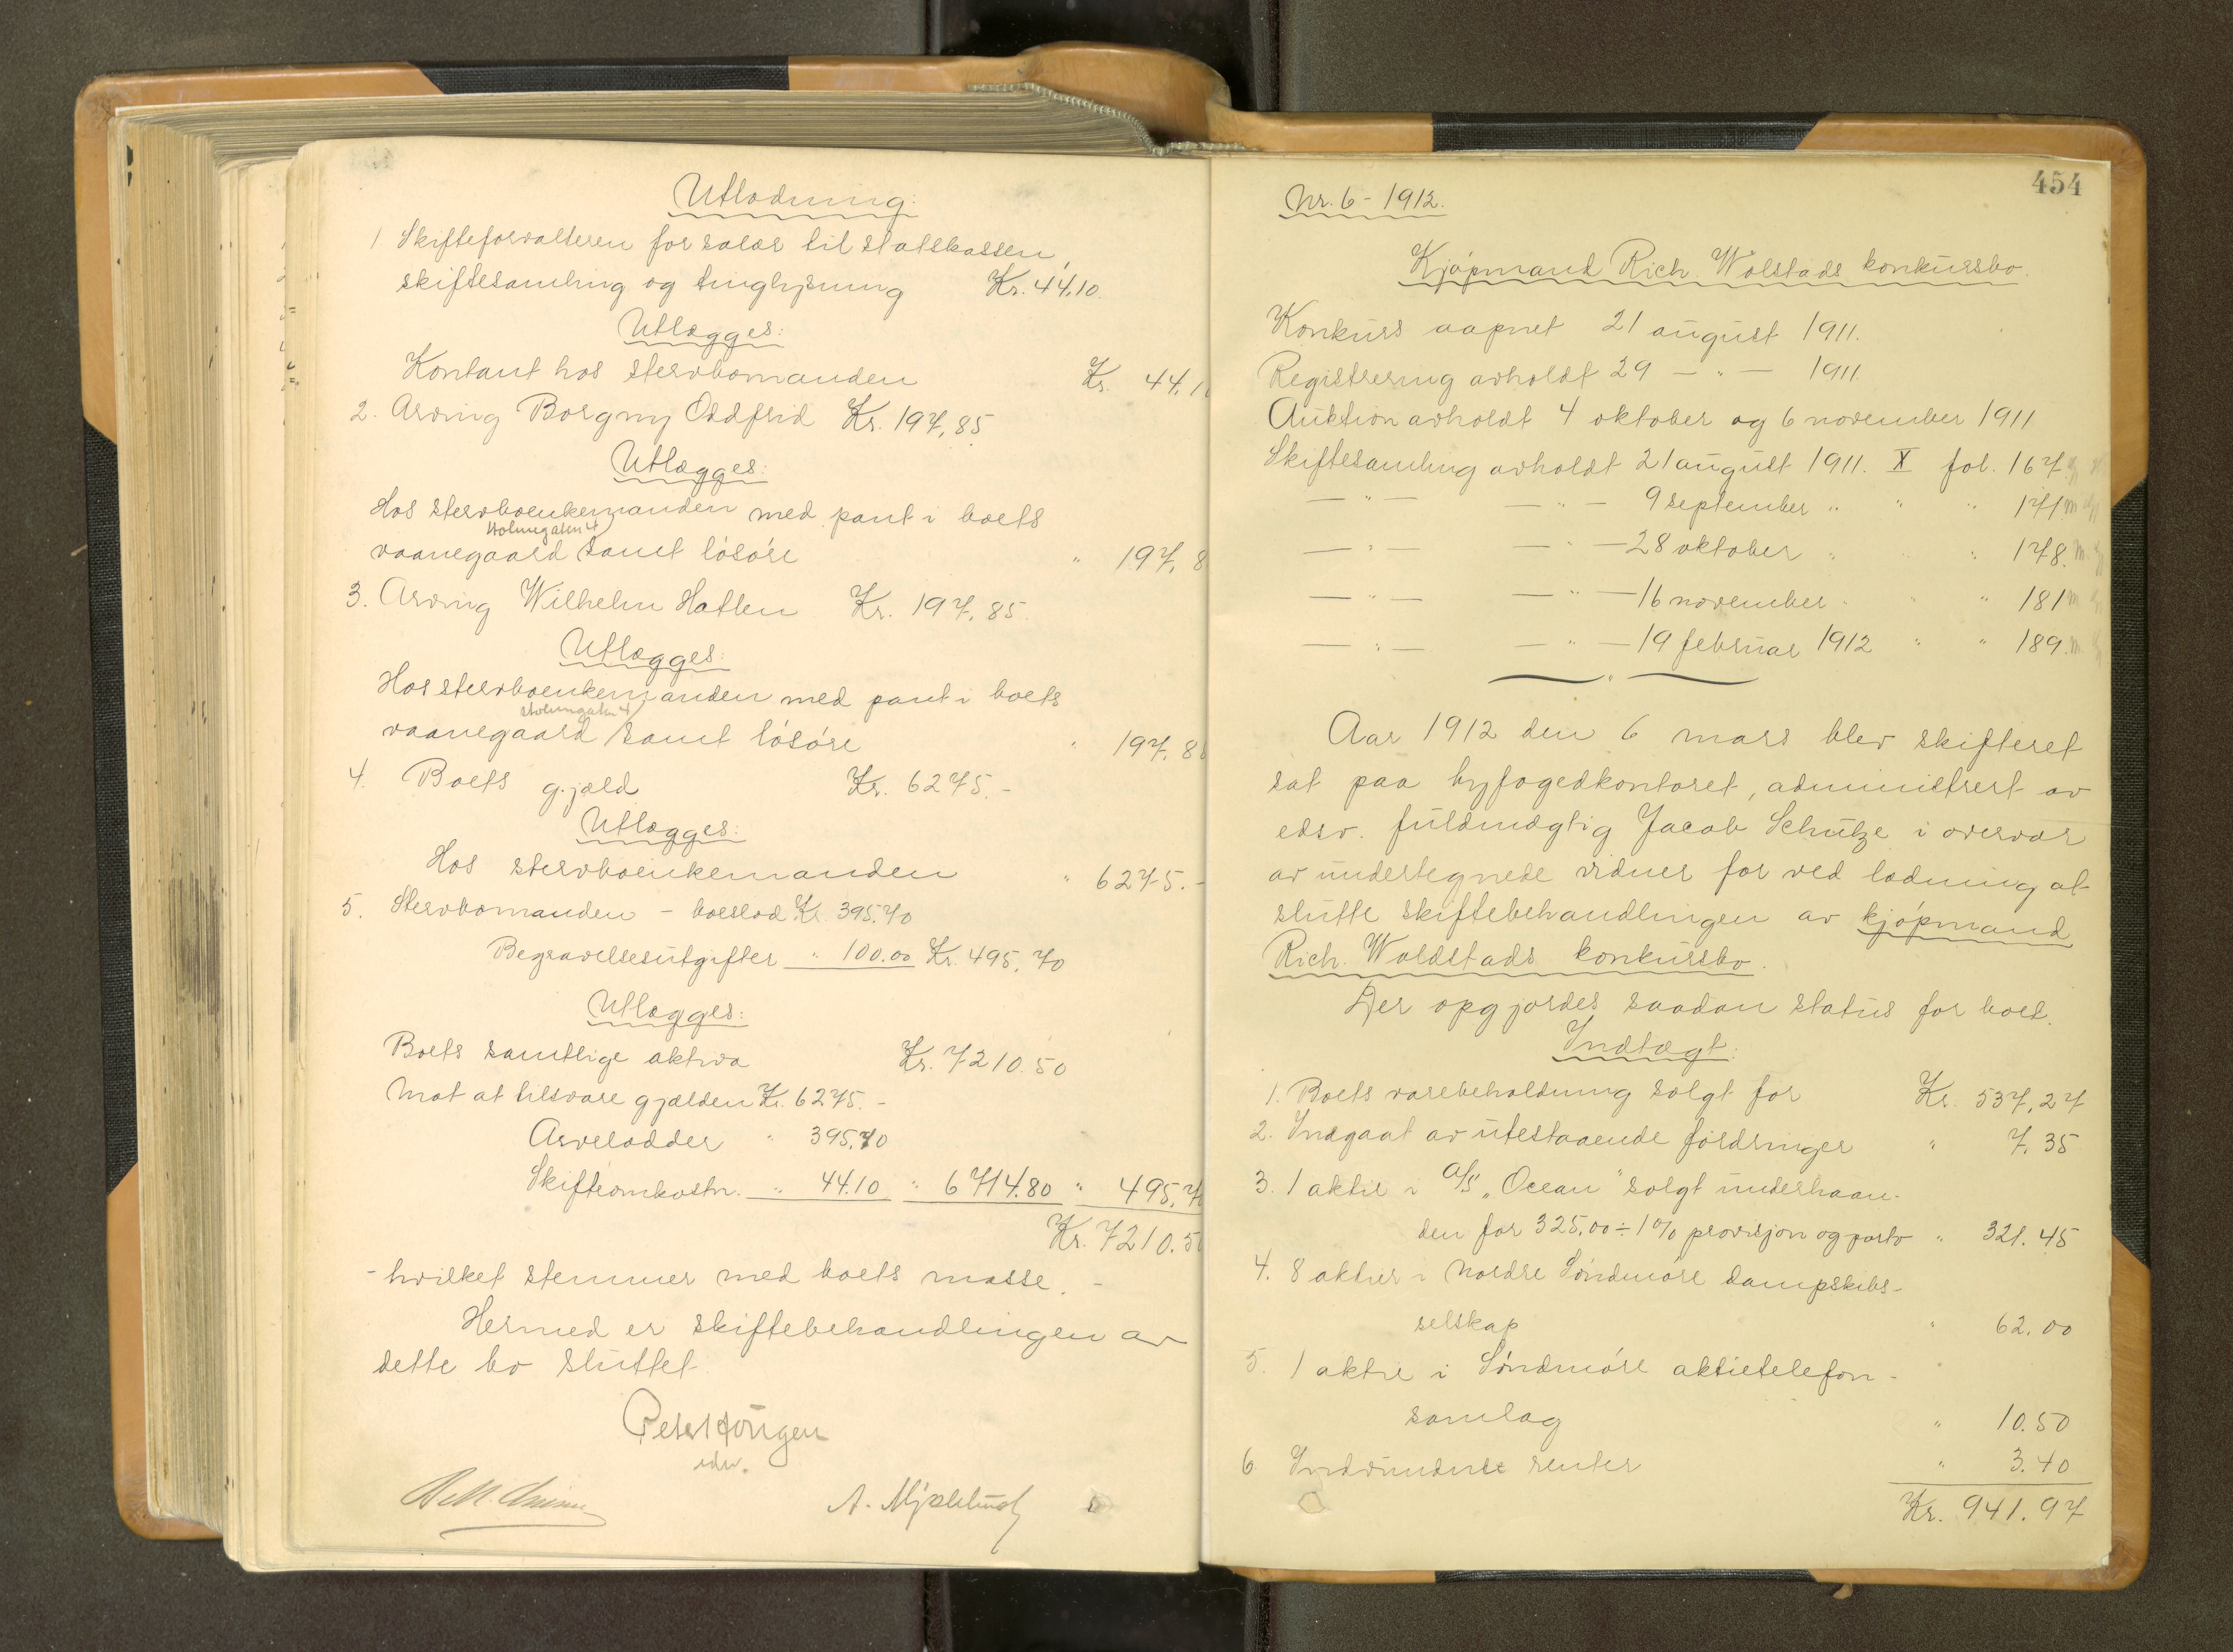 Utlodning:
1 Skifteforvalteren for salær til statskassen,
skiftesamling og tinglysning Kr. 44.10.
Utlægges:
Kontant hos stervbomanden Kr. 44.1
2. Arving Borgny Oddfrid Kr. 197,85
Utlægges:
Hos stervboenkemanden med pant i boets
Holmegaten 4
vaanegaard samt løsøre " 197,8
3. Arving Wilhelm Hatlen Kr. 197,85.
Utlægges:
Hos stervboenkemanden med pant i boets
Holmegaten 4
vaanegaard samt løsøre " 197,8
4. Boets gjæld Kr. 6275.-
Utlægges:
Hos stervboenkemanden " 6275.-
5. Stervbomanden - boeslod Kr. 395.70
Begravelsesutgifter " 100.00 Kr. 495,70
Utlægges:
Boets samtlige aktiva Kr. 7210.50
Mot at tilsvare gjælden Kr. 6275.-
Arvelodder " 395.70
Skifteomkostn. " 44.10 " 6714.80 " 495,7
Kr. 7210.5
- hvilket stemmer med boets masse. -
Hermed er skiftebehandlingen av
dette bo sluttet.
Peter
edsv.
A.
454
Nr. 6 - 1912.
Kjøpmand Rich. Wolstads konkursbo.
Konkurs aapnet 21 august 1911.
Registrering avholdt 29 — " — 1911.
Auktion avholdt 4 oktober og 6 november 1911
Skiftesamling avholdt 21 august 1911. X fol. 167
— " — — " — 9 september " " " 171
— " — — " — 28 oktober " " 178.
— " — — " — 16 november " " " 181
— " — — " — 19 februar 1912 " " 189.
Aar 1912 den 6 mars blev skifteret
sat paa byfogedkontoret, administrert av
edsv. fuldmægtig Jacob Schulze i overvær
av undertegnede vidner for ved lodning at
slutte skiftebehandlingen av kjøpmand
Rich. Woldstads konkursbo.
Der opgjordes saadan status for boet.
Indtægt:
1. Boets varebeholdning solgt for Kr. 537,27
2. Indgaat av utestaaende fordringer " 7,35
3. 1 aktie i A/S "Ocean" solgt underhaan-
den for 325.00 ÷ 1% provisjon og porto " 321.45
4. 8 aktier i Nordre Søndmøre Dampskibs-
selskap " 62.00
5. 1 aktie i Søndmøre aktietelefon-
samlag " 10.50
6 Indvundne renter " 3.40
Kr. 941.97